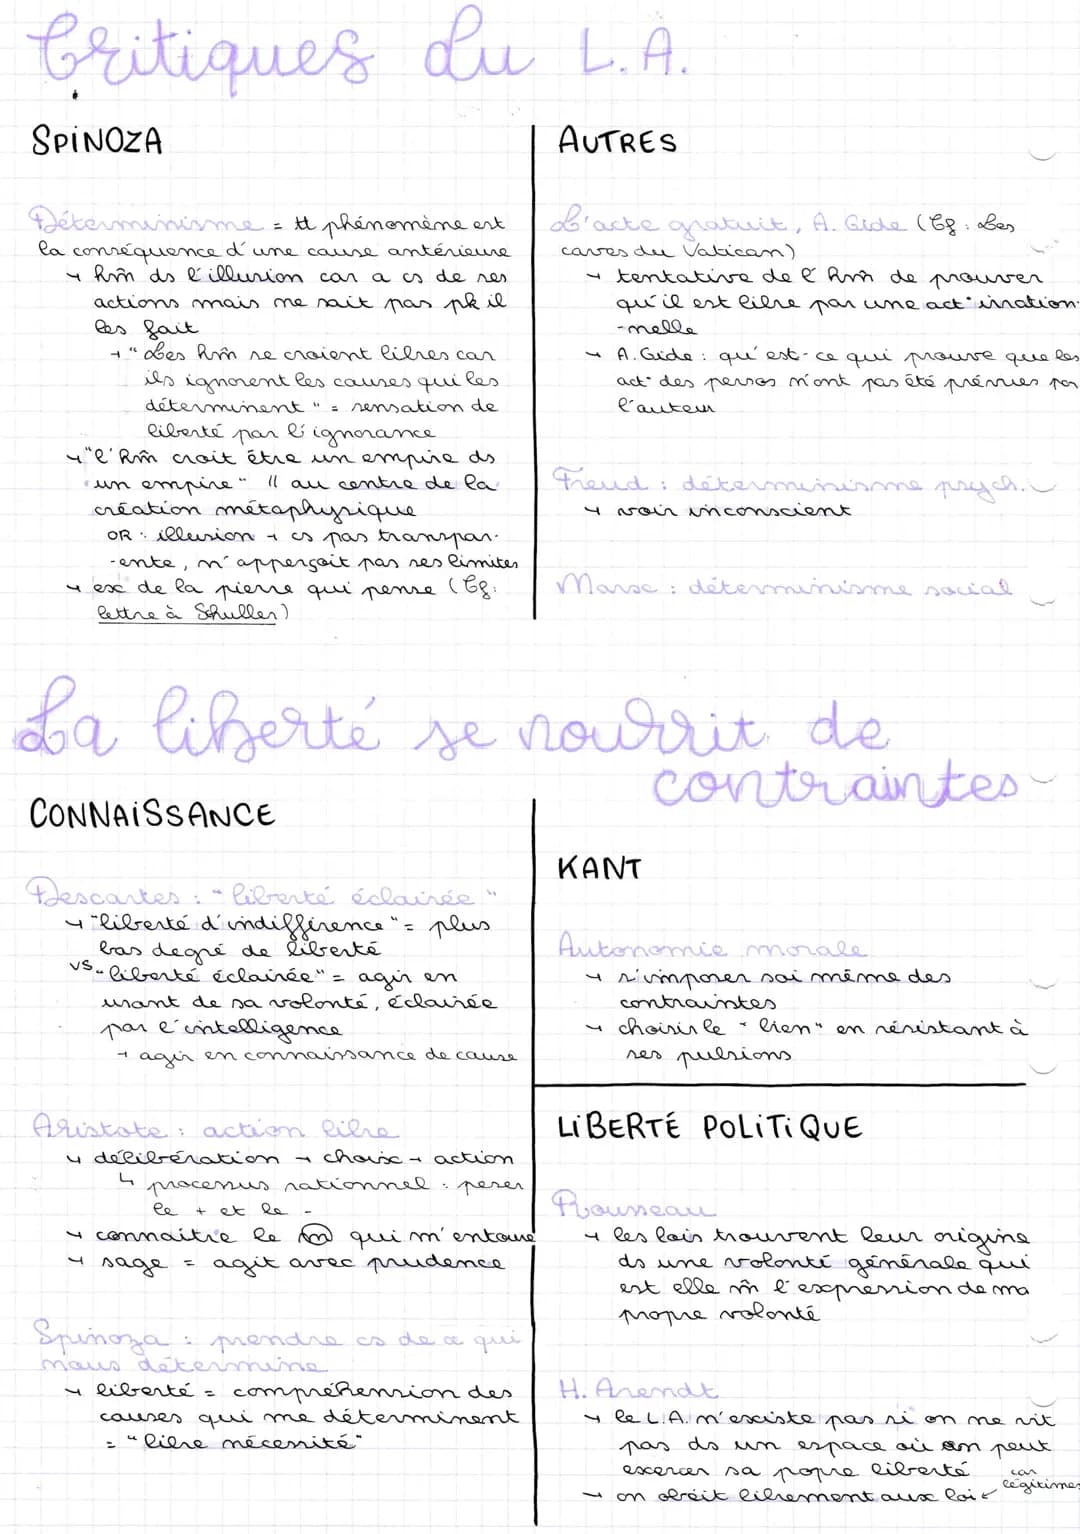 Critiques du L.A.
SPINOZA
Déterminisme = tt phénomène est
la conséquence d'une cause antérieure
→ hm̂ ds l'illusion car a cs de ses
actions mais ne sait pas pk il
les fait
→ "Les hm̂ se croient libres car
ils ignorent les causes qui les
déterminent" = sensation de
liberté par l'ignorance
→ "l'hm̂ croit être un empire ds
un empire" // au centre de la
création métaphysique
OR : illusion → cs pas transpar-
-ente, n'apperçoit pas ses limites
→ ex de la pierre qui pense (Cf :
lettre à Schuller)
AUTRES
L'acte gratuit, A. Gide (Cf : Les
caves du Vatican)
→ tentative de l'hm̂ de prouver
qu'il est libre par une act° irration-
-nelle
→ A. Gide : qu'est-ce qui prouve que les
act° des persos n'ont pas été prévues par
l'auteur
Freud : déterminisme psych.
→ voir inconscient
Marx : déterminisme social
La liberté se nourrit de
contraintes
CONNAISSANCE
Descartes : "liberté éclairée"
→ "liberté d'indifférence" = plus
bas degré de liberté
vs "liberté éclairée" = agir en
usant de sa volonté, éclairée
par l'intelligence
→ agir en connaissance de cause
Aristote : action libre
→ délibération → choix → action
↳ processus rationnel : peser
le + et le -
→ connaître le m qui m'entoure
→ sage = agit avec prudence
Spinoza : prendre cs de ce qui
nous détermine
→ liberté = compréhension des
causes qui me déterminent
= "libre nécessité"
KANT
Autonomie morale
→ s'imposer soi même des
contraintes
→ choisir le "bien" en résistant à
ses pulsions
LIBERTÉ POLITIQUE
Rousseau
→ les lois trouvent leur origine
ds une volonté générale qui
est elle m̂ l'expression de ma
propre volonté
H. Arendt
→ le L.A. n'existe pas si on ne vit
pas ds un espace où on peut
exercer sa propre liberté
→ on obéit librement aux loi ← car
légitimes